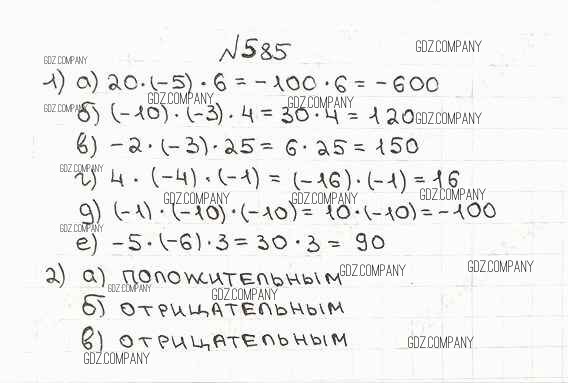 №585
GDZ.COMPANY
GDZ.COMPANY
1) а) 20·(-5)·6 = -100·6 = -600
GDZ.COMPANY GDZ.COMPANY
GDZ.COMPANY
б) (-10)·(-3)·4 = 30·4 = 120
GDZ.COMPANY
в) -2·(-3)·25 = 6·25 = 150
GDZ.COMPANY
г) 4·(-4)·(-1) = (-16)·(-1) = 16
GDZ.COMPANY GDZ.COMPANY GDZ.COMPANY
д) (-1)·(-10)·(-10) = 10·(-10) = -100
GDZ.COMPANY
е) -5·(-6)·3 = 30·3 = 90
GDZ.COMPANY GDZ.COMPANY
2) а) положительным
GDZ.COMPANY GDZ.COMPANY
б) отрицательным
в) отрицательным
GDZ.COMPANY
GDZ.COMPANY